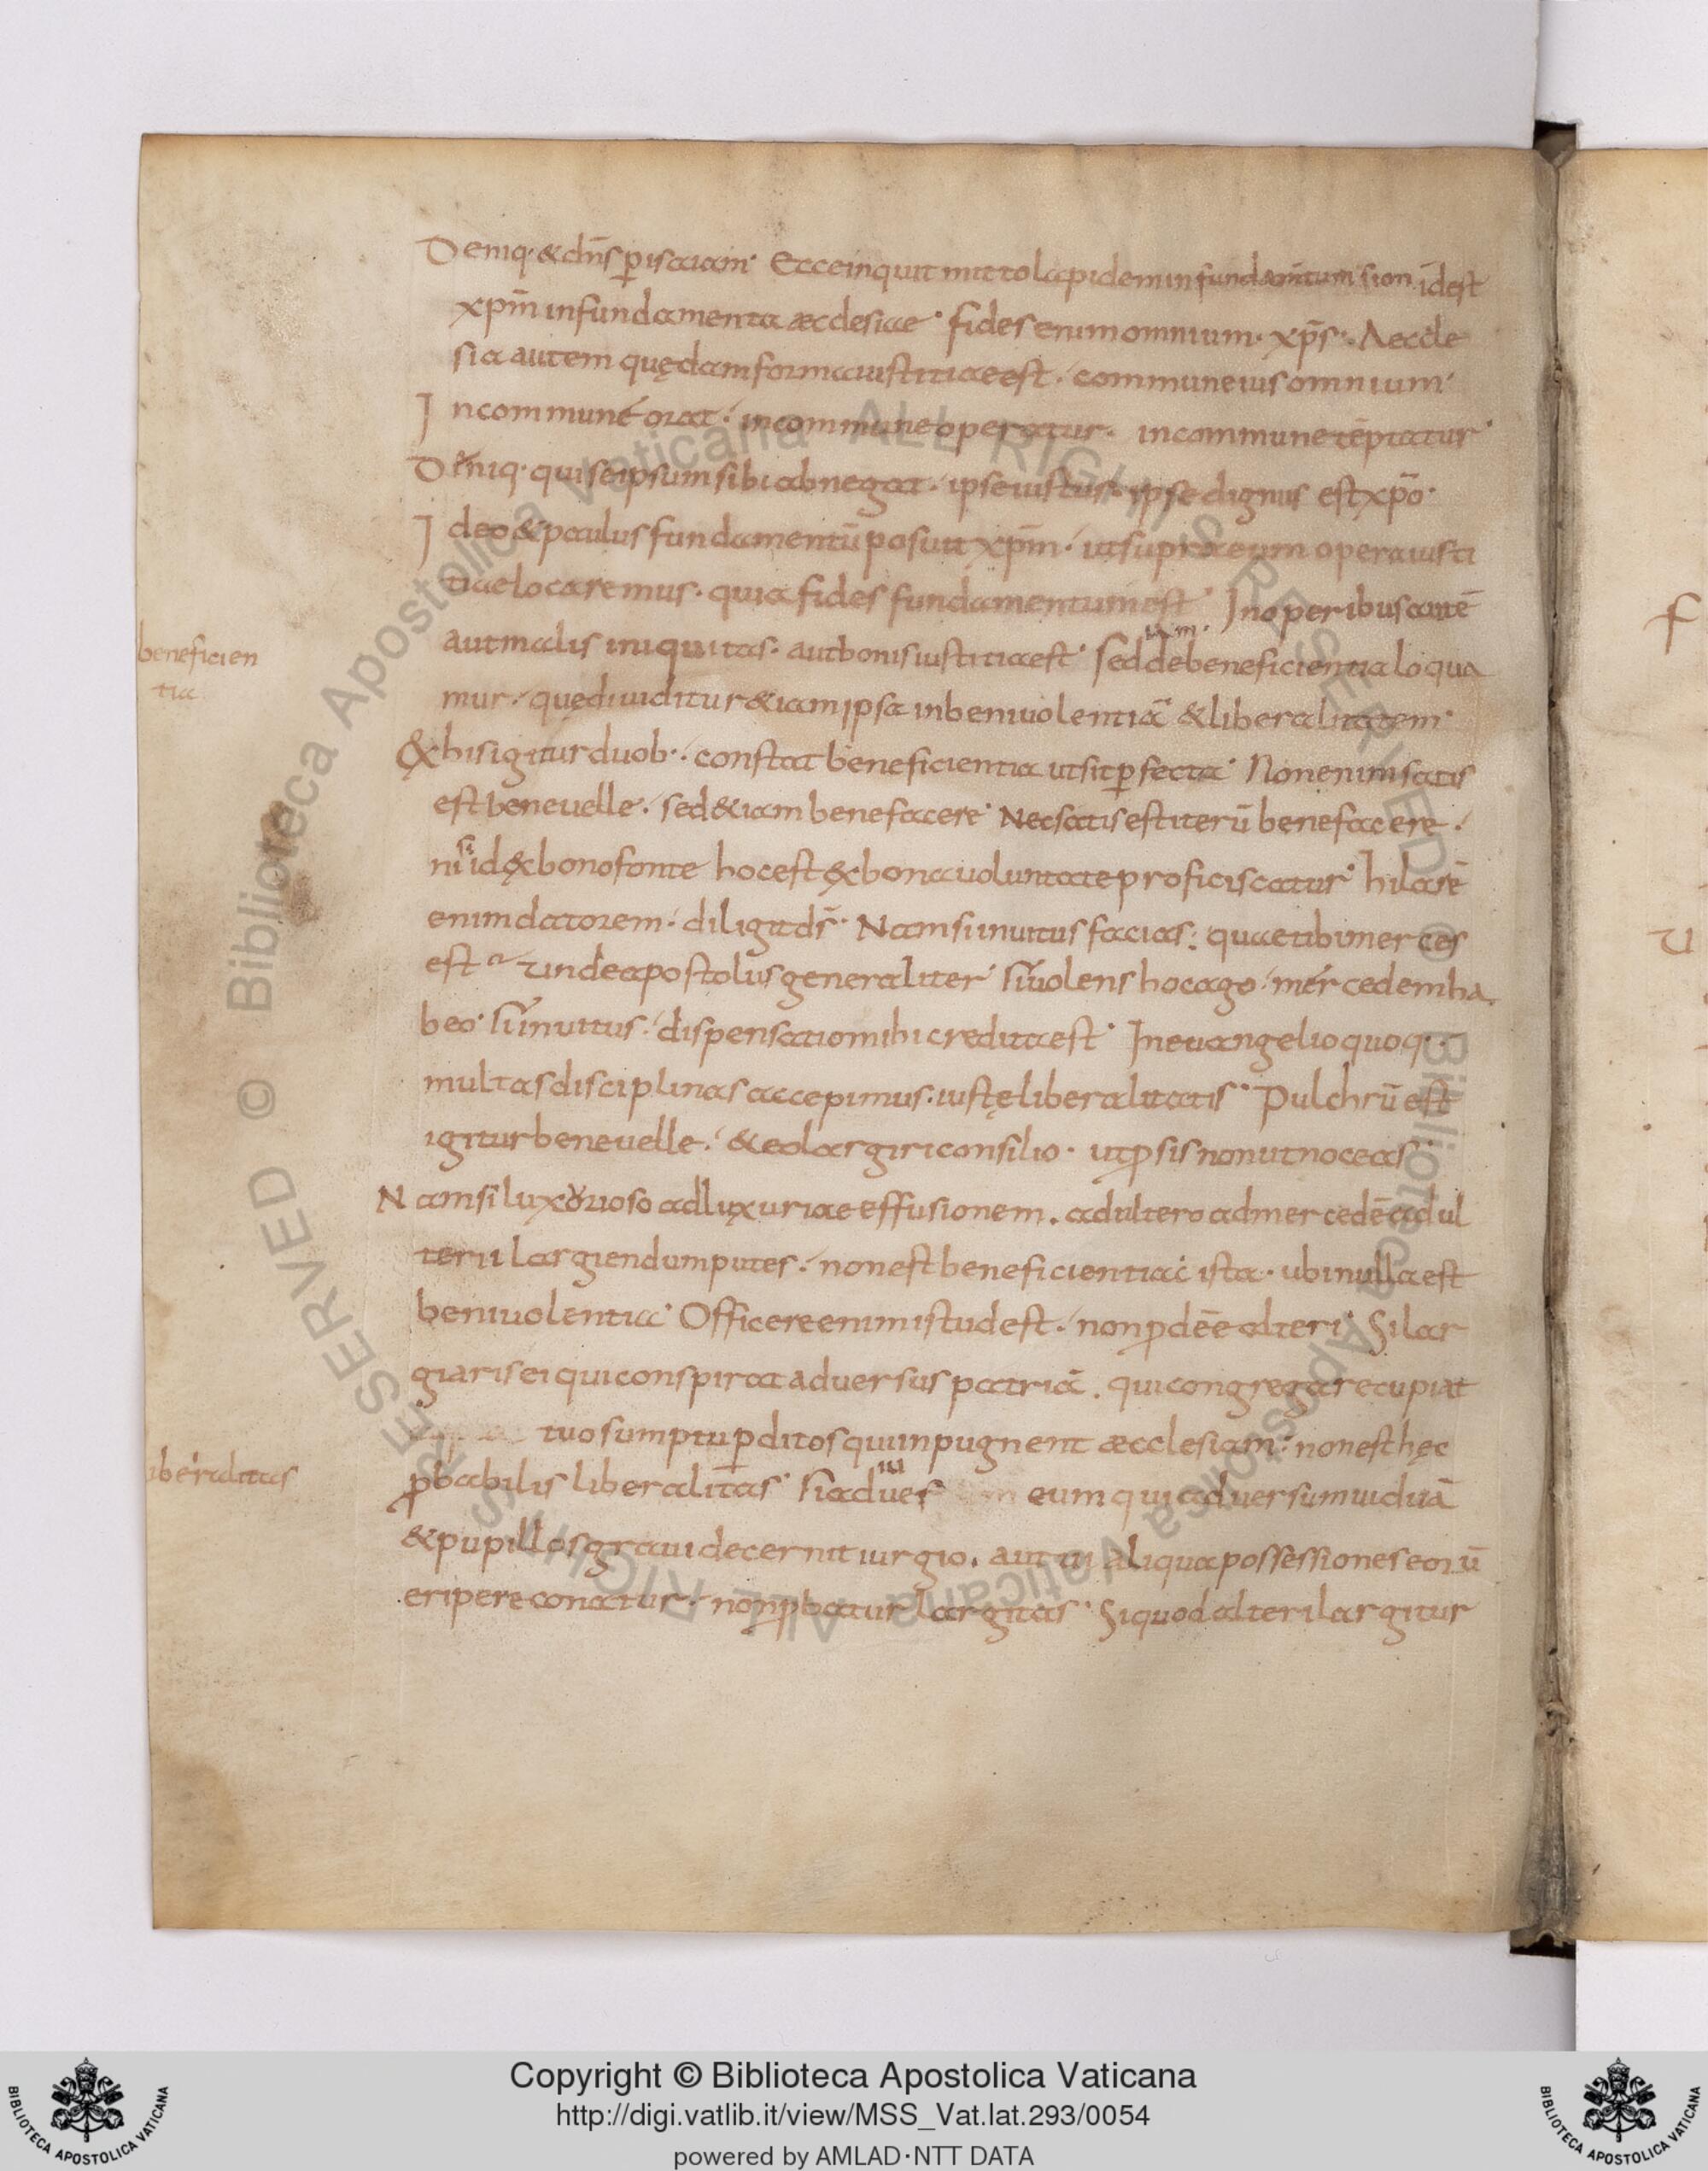 Deniq· & dn̄s ꝑ isaiam· Ecce inquit mitto lapidem in fundam̄tum sion· idest
xp̄m in fundamenta æcclesiae· fides enim omnium· xp̄s·. Aeccle
sia autem quędam forma iustitiae est· commune ius omnium·
In commune orat· in commune operatur· in commune tēptatur·
Deniq· qui se ipsum sibi abnegat· ipse iustus· ipse dignus est xp̄o·
Ideo & paulus fundamentū posuit xp̄m· ut supra eum opera iusti
tiae locaremus· quia fides fundamentum est· In operibus autē
beneficien
tia
aut malis iniquitas· aut bonis iustitia est· sed de beneficientia loqua
mur· quę diuiditur &iam ipsa in beniuolentiā & liberalitatem·
Ex his igitur duob·· constat beneficientia ut sit ꝑfecta· Non enim satis
est bene uelle· sed &iam benefacere· Nec satis est iterū benefacere·
nisi id ex bono fonte hoc est ex bona uoluntate proficiscatur· hilarē
enim datorem· diligit ds̄· Nam si inuitus facias: quae tibi merces
est unde apostolus generaliter· si uolens hoc ago· mercedem ha
beo· si inuitus· dispensatio mihi credita est· In euangelio quoq·
multas disciplinas accepimus· iustę liberalitatis· Pulchrū est
igitur bene uelle· & eo largiri consilio· ut ꝓsis non ut noceas·
Nam si luxorioso ad luxuriae effusionem· adultero ad mercedē adul
terii largiendum putes· non est beneficientia ista· ubi nulla est
beniuolentia· Officere enim istud est· non ꝓdēe alteri· Si lar
giaris ei qui conspirat aduersus patriā· qui congregare cupiat
tuo sumptu ꝑditos qui inpugnent æcclesiam· non est hęc
iberalitas
ꝓbabilis liberalitas· si adiuues eum qui aduersum uiduā
& pupillos graui decernit iurgio· aut ui aliqua possessiones eorū
eripere conatur· non ꝓbatur largitas· Si quod alteri largitur
Copyright © Biblioteca Apostolica Vaticana
http://digi.vatlib.it/view/MSS_Vat.lat.293/0054
powered by AMLAD·NTT DATA
BIBLIOTECA APOSTOLICA VATICANA
BIBLIOTECA APOSTOLICA VATICANA